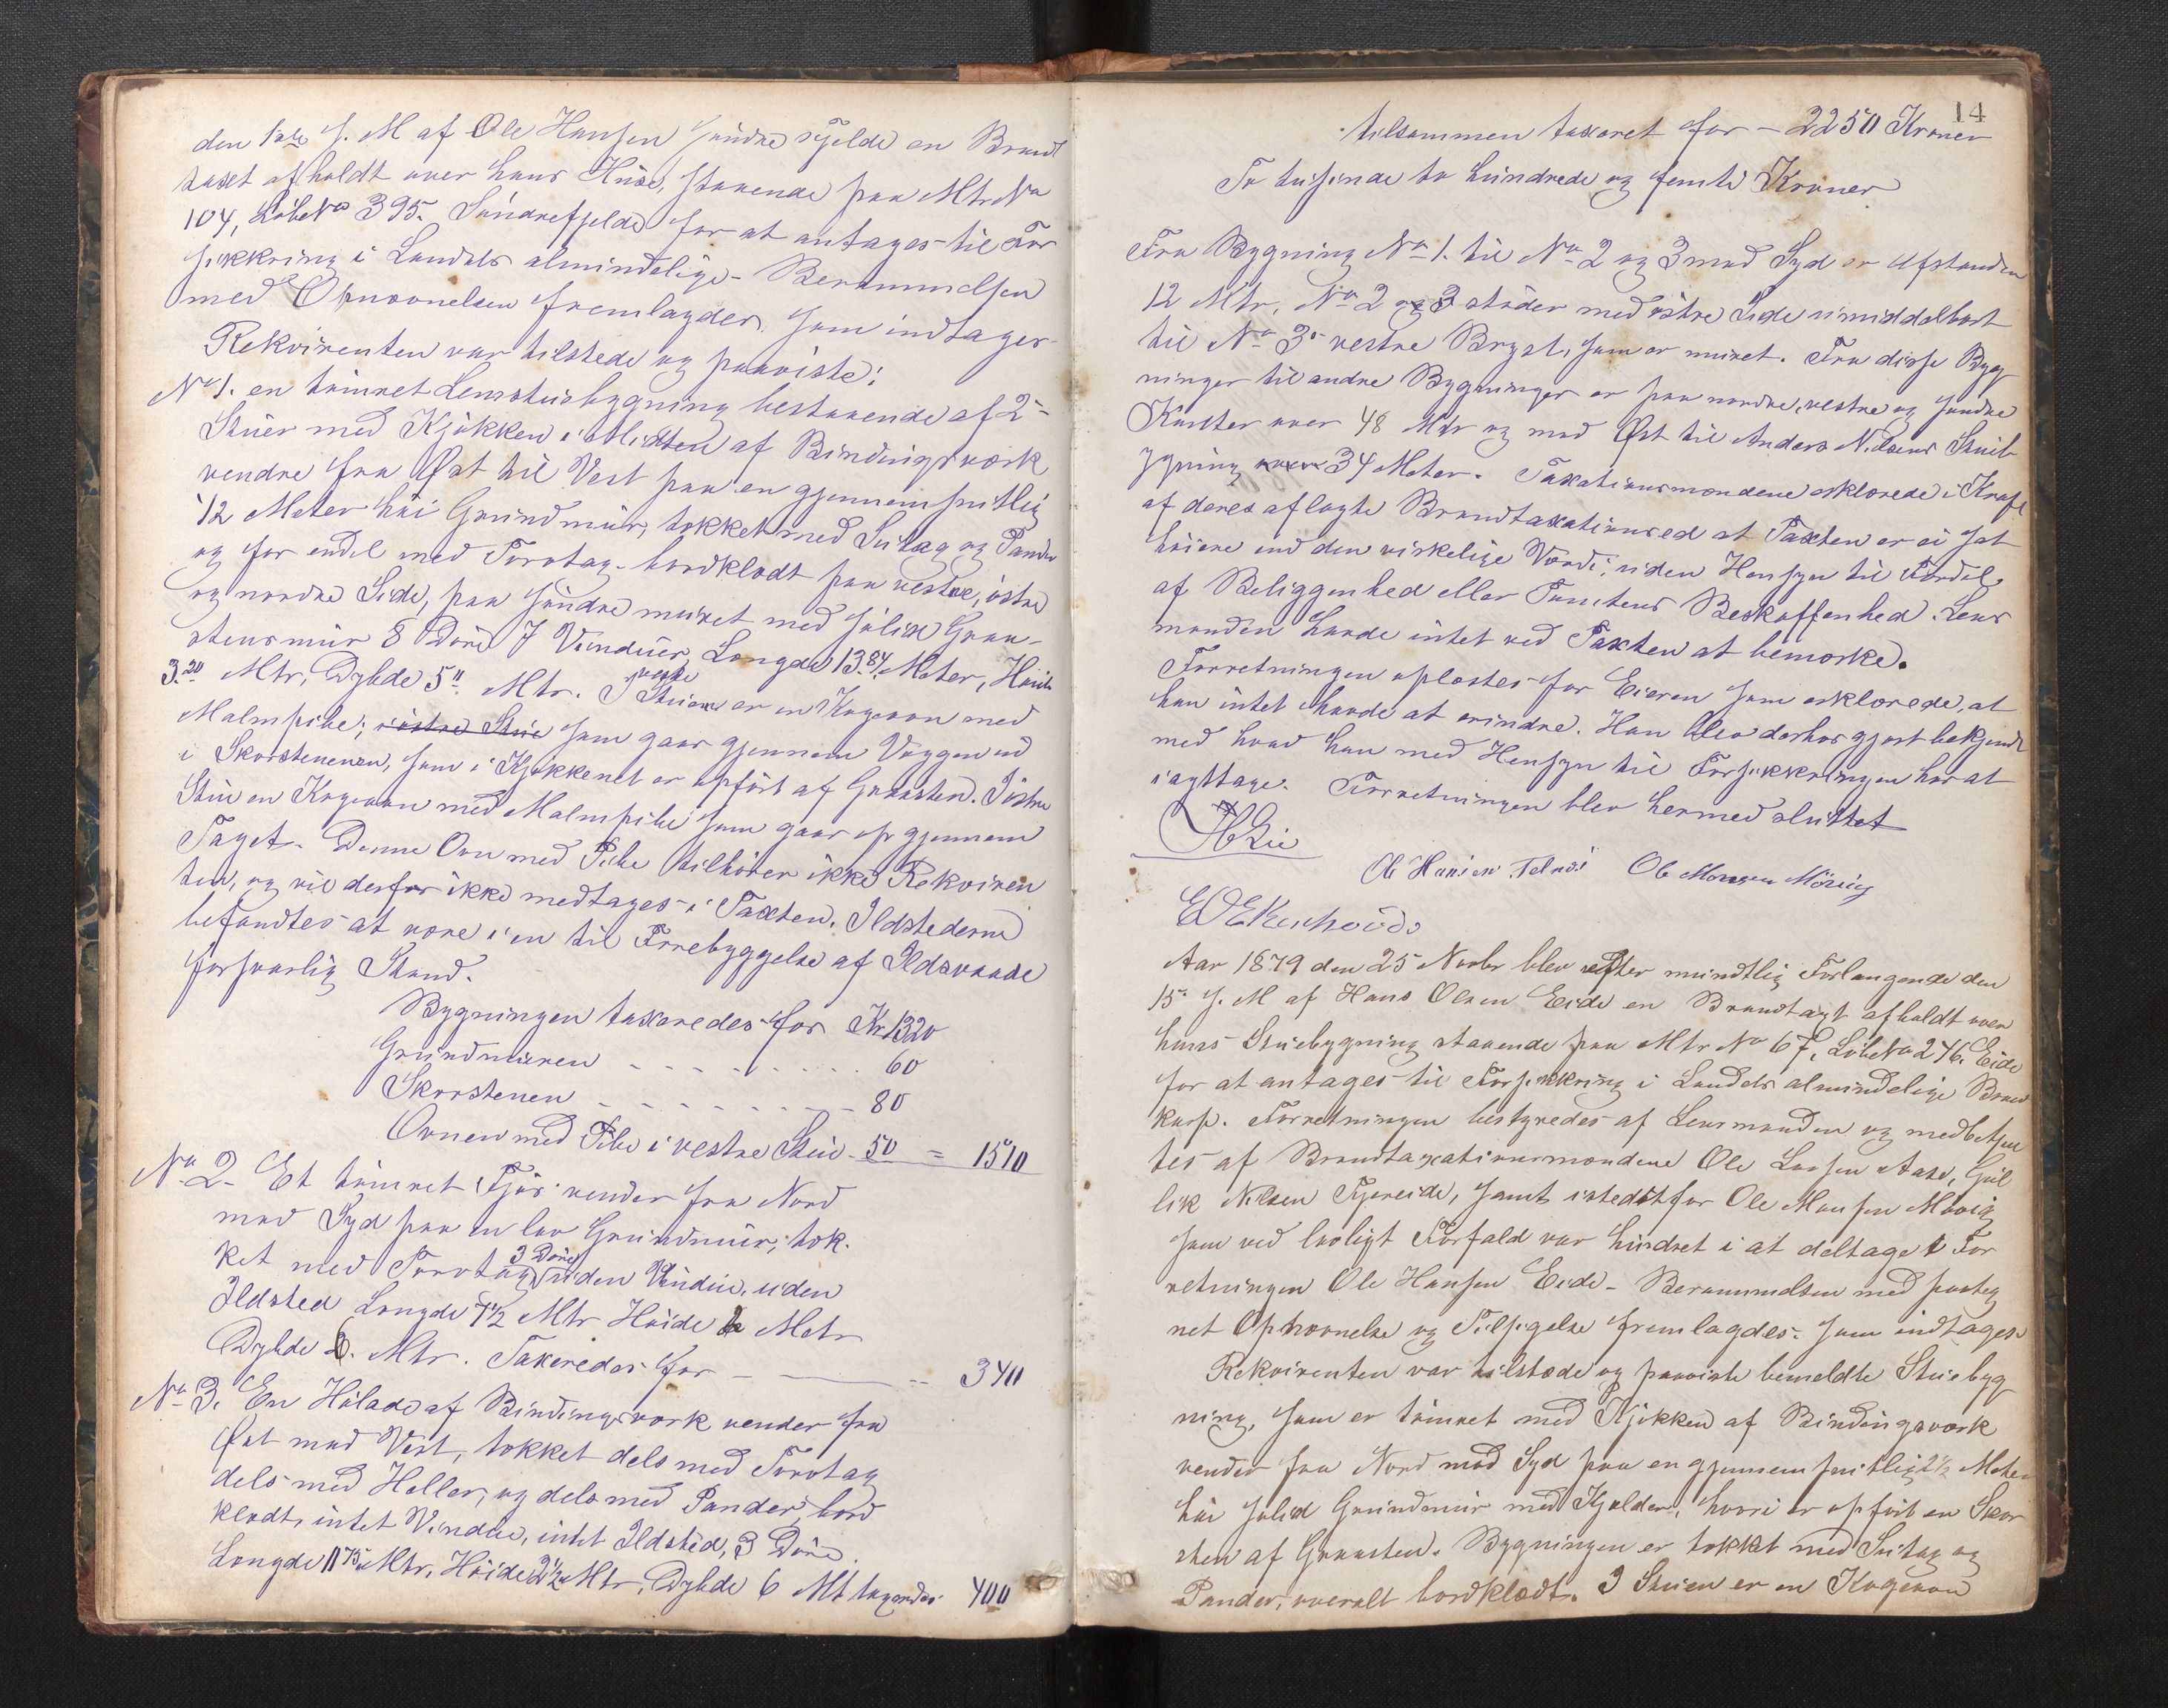 den 1ste s. M af Ole Hansen Søndre Fjelde en Brand
taxt afholdt over hans Huse, staaende paa Mtr No
104, Løbe No 395. Søndrefjelde for at antages til For
sikkring i Landets almindelige - Berammelsen
med Opnævnelsen fremlagdes, som indtages.
Rekvirenten var tilstede og paaviste:
No 1. en tømret Levestuebygning bestaaende af 2
Stuer med Kjøkken i Midten af Bindingsværk
vendre fra Øst til Vest paa en gjennemsnitlig
1/2 Meter høi Grundmur, tækket med Sutag og Pander
og for endel med Torvtag - bordklædt paa vestre, østre
og nordre Side, paa søndre muret med solid Graa-
stensmur 8 Døre 7 Vinduer, Længde 13.84. Meter, Høide
3.20 Mtr, Dybde 5" Mtr. I vestre Stuen er en Kogeovn med
Malmpibe; i østre Stue som gaar gjennem Væggen ud
i Skorstenenen, som i Kjøkkenet er opført af Graasten. I østre
Stue en Kogeovn med Malmpibe som gaar op gjennem
Taget. Denne Ovn med Pibe tilhører ikke Rekviren
ten, og vil derfor ikke medtages i Taxten. Ildstederne
befandtes at være i en til Forebyggelse af Ildsvaade
forsvarlig Stand.
Bygningen taxeredes for Kr 1320
Grundmuren - - - - - - - - 60
Skorstenen - - - - - - - - 80
Ovnen med Pibe i vestre Stue - 50 = 1510
No 2 - Et tømret Fjøs vender fra Nord
mod Syd paa en lav Grundmur, tæk-
ket med Torvtag 3 Døre uden Vindue, uden
Ildsted Længde 7 1/2 Mtr Høide 2 Metr
Dybde 6. Mtr. Taxeredes for - — -- 340
No 3. En Hølade af Bindingsværk vender fra
Øst mod Vest, tækket dels med Torvtag
dels med Heller, og dels med Pander, bord
klædt, intet Vindue, intet Ildsted, 3 Døre.
Længde 11 75 Mtr, Høide 2 1/2 Mtr, Dybde 6 Mt taxerdes 400
14
tilsammen taxeret for - 2250 Kroner
To tusinde to hundrede og femti Kroner
Fra Bygning No 1. til No 2 og 3 mod Syd er Afstanden
12 Mtr, No 2 og 3 støder med østre Side umiddelbart
til No 3s vestre Bryst, som er muret. Fra disse Byg
ninger til andre Bygninger er paa nordre, vestre og søndre
Kanter over 48 Mtr og mod Øst til Anders Nilsens Stueb
ygning over 34 Meter. Taxationsmændene erklærede i Kraft
af deres aflagte Brandtaxationsed at Taxten er ei sat
høiere end den virkelige Værdi, uden Hensyn til Fordel
af Beliggenhed eller Tomtens Beskaffenhed. Lens
manden havde intet ved Taxten at bemærke.
Forretningen oplæstes for Eieren som erklærede, at
han intet havde at erindre. Han blev derhos gjort bekjendt
med hvad han med Hensyn til Forsikkringen har at
iagttage. Forretningen blev hermed sluttet
Lie
Ole Hansen Ole Monsen
Aar 1879 den 25 Novbr blev efter mundtlig Forlangende den
15. s. M af Hans Olsen Eide en Brandtaxt afholdt over
hans Stuebygning staaende paa Mtr No 67, Løbe No 246. Eide
for at antages til Forsikkring i Landets almindelige Brand
kasse. Forretningen bestyredes af Lensmanden og medbetjen
tes af Brandtaxationsmændene Ole Larsen Aase, Gul
lik Nilsen Fjereide, samt istedetfor Ole Monsen Møvig
som ved lovligt Forfald var hindret i at deltage i For
retningen Ole Hansen Eide - Berammelsen med paateg
net Opnævnelse og Tilsigelse fremlagdes. som indtages.
Rekvirenten var tilstede og paaviste bemeldte Stuebyg
ning, som er tømret med Kjøkken af Bindingsværk
vender fra Nord mod Syd paa en gjennemsnitlig 2 1/2 Meter
høi solid Grundmur med Kjelder, hvori er opført en Skor
sten af Graasten. Bygningen er tækket med Sutag og
Pander, overalt bordklædt. I Stuen er en Kogeovn